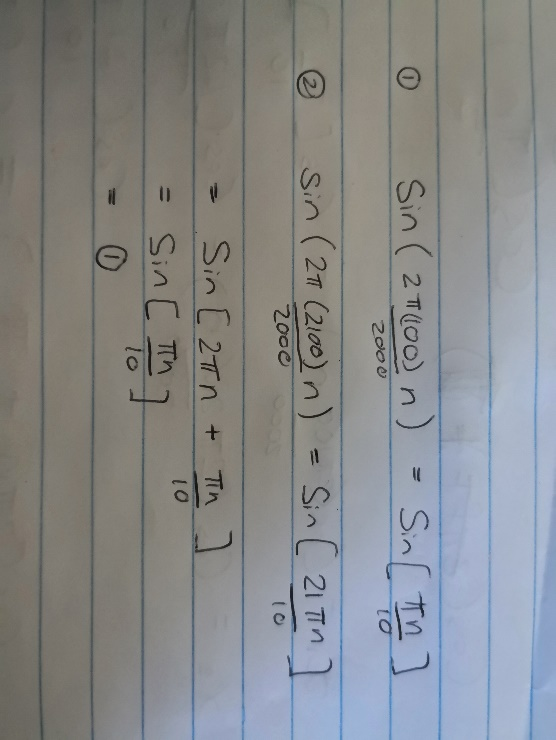 ① Sin( 2π(100)/2000 n) = Sin[ πn/10 ]
② Sin( 2π(2100)/2000 n) = Sin[ 21πn/10 ]
= Sin[ 2πn + πn/10 ]
= Sin[ πn/10 ]
= ①